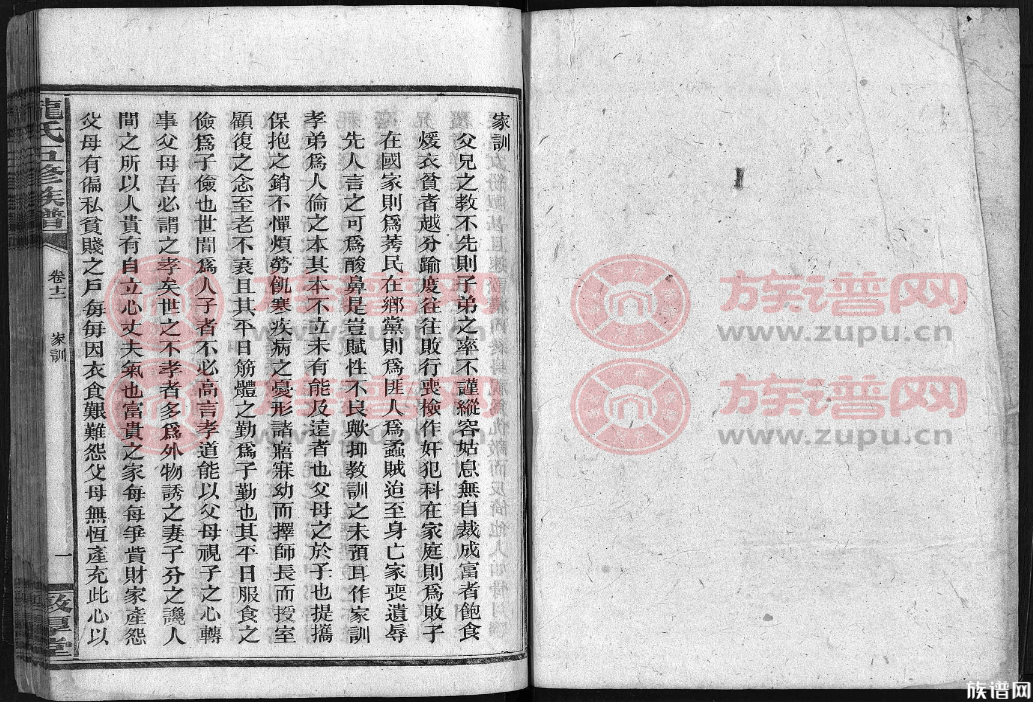 家訓
父兄之教不先則子弟之率不謹縱容姑息無自裁成富者飽食
煖衣貧者越分踰度往往敗行喪檢作奸犯科在家庭則爲敗子
在國家則爲莠民在鄉黨則爲匪人爲蟊賊迨至身亡家喪遺辱
先人言之可爲酸鼻是豈賦性不良歟抑教訓之未預耳作家訓
孝弟爲人倫之本其本不立未有能及遠者也父母之於子也提攜
保抱之銷不憚煩勞飢寒疾病之憂形諸寤寐幼而擇師長而授室
顧復之念至老不衰且其平日筋體之勤爲子勤也其平日服食之
儉爲子儉也世間爲人子者不必高言孝道能以父母視子之心轉
事父母吾必謂之孝矣世之不孝者多爲外物誘之妻子分之讒人
間之所以人貴有自立心丈夫氣也富貴之家每每爭貲財家產怨
父母有徧私貧賤之戶每每因衣食艱難怨父母無恆產充此心以
龍氏五修族譜
卷十二
家訓
一
敦厚堂
族谱网
www.zupu.cn
族谱网
www.zupu.cn
族谱网
www.zupu.cn
族谱网
www.zupu.cn
族谱网